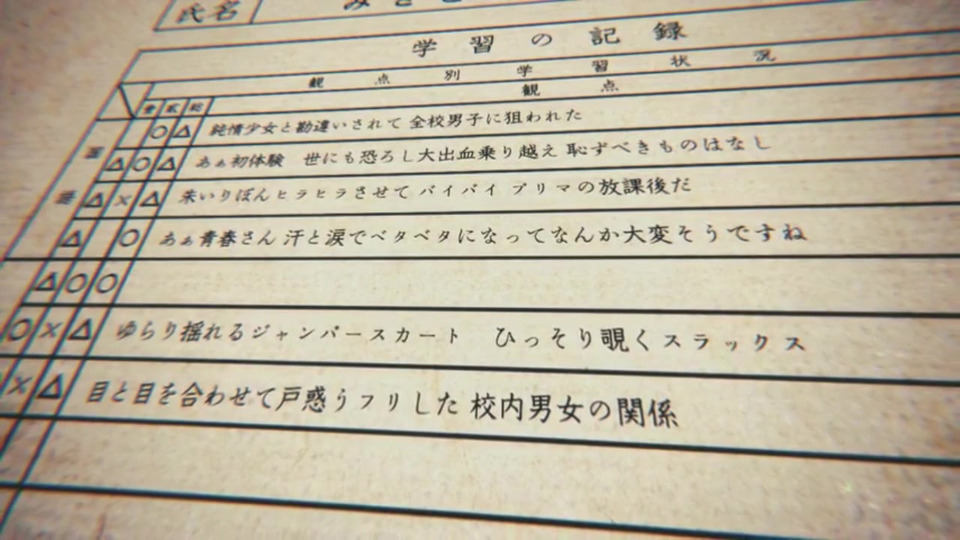 氏名
学習の記録
観点別学習状況
観点
○ △ 純情少女と勘違いされて 全校男子に狙われた
△ ○ △ あぁ初体験 世にも恐ろし大出血乗り越え 恥ずべきものはなし
△ × △ 朱いりぼんヒラヒラさせて バイバイ プリマの放課後だ
△ ○ あぁ青春さん 汗と涙でベタベタになってなんか大変そうですね
△ ○ ○
○ × △ ゆらり揺れるジャンパースカート ひっそり覗くスラックス
× △ 目と目を合わせて戸惑うフリした 校内男女の関係